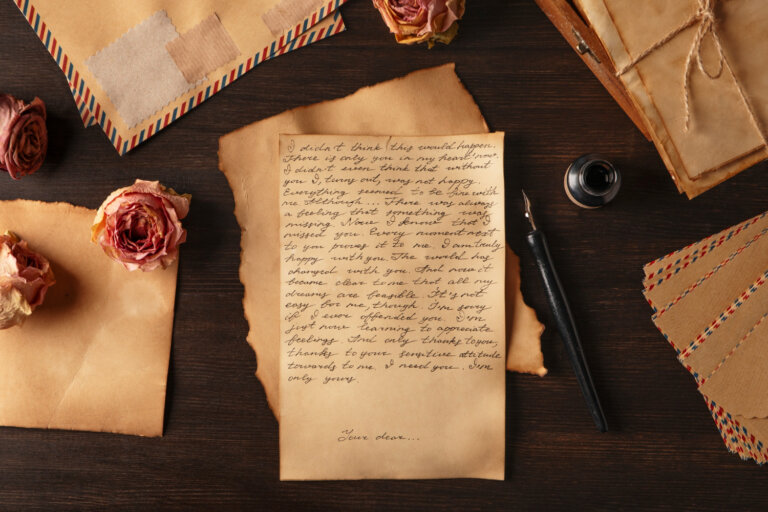 I didn't think this would happen.
There is only you in my heart now.
I didn't even think that without
you I, turns out, was not happy.
Everything seemed to be fine with
me Although... There was always
a feeling that something was
missing. Now I know that I
missed you. Every moment next
to you proves it to me. I am truly
happy with you. The world has
changed with you. And now it
became clear to me that all my
dreams are feasible. It's not
easy for me, though. I'm sorry
if I ever offended you. I'm
just now learning to appreciate
feelings. And only thanks to you,
thanks to your sensitive attitude
towards to me. I need you. I'm
only yours.
Your dear...